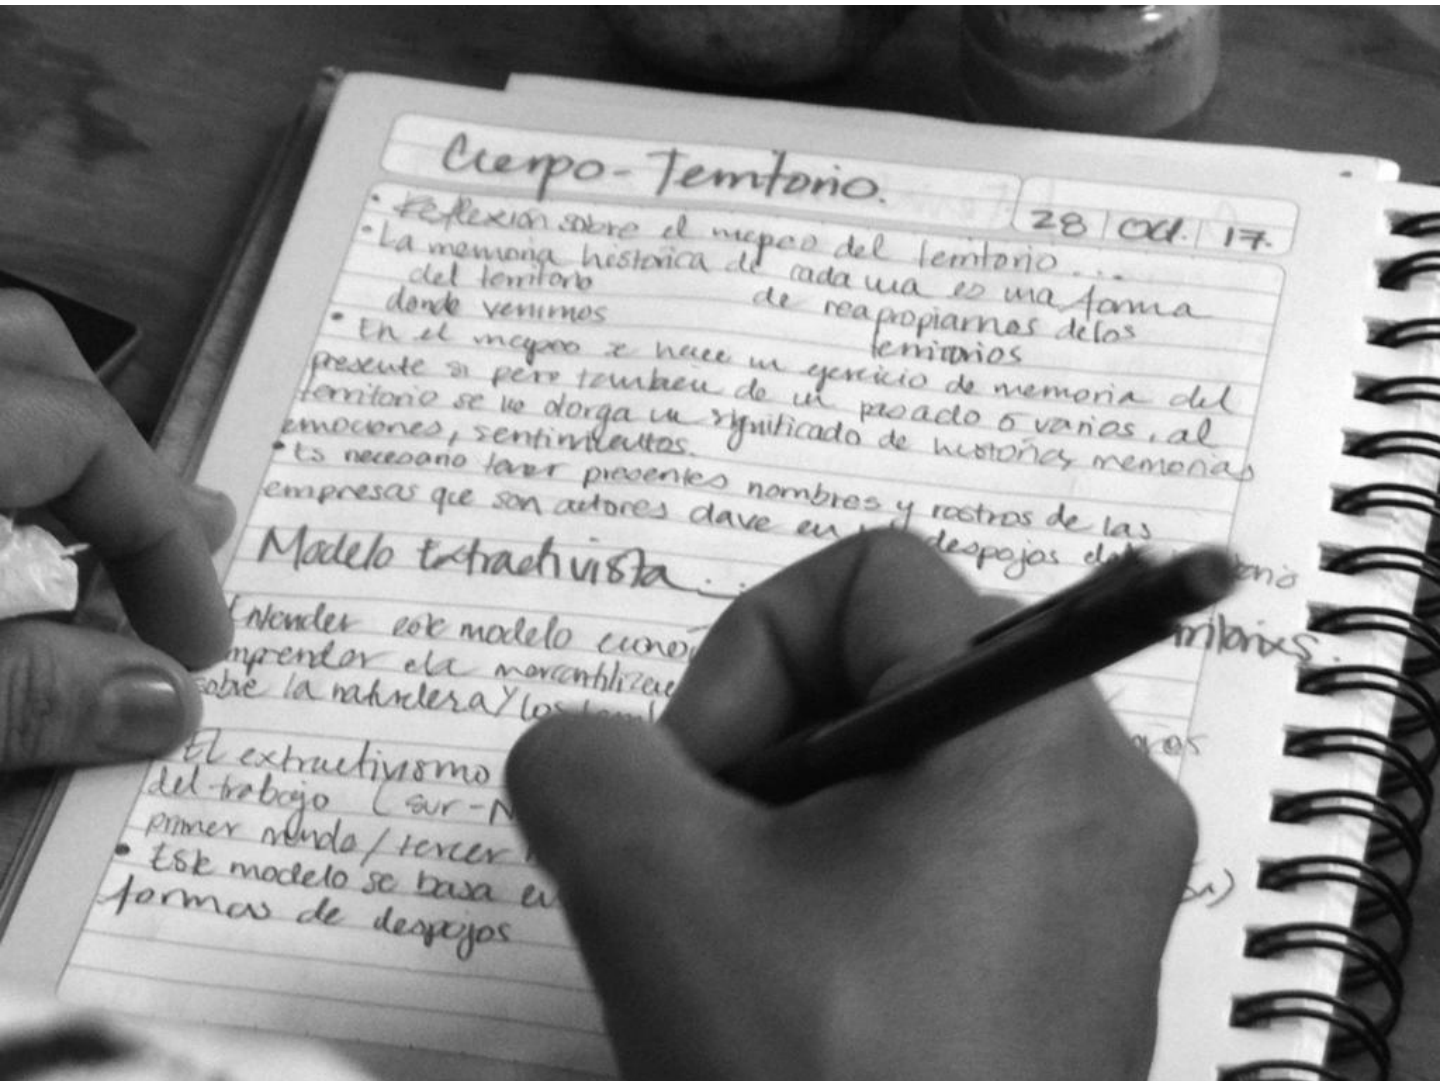 Cuerpo-Territorio.
28 | Oct. | 17.
• Reflexión sobre el mapeo del territorio...
• La memoria histórica de cada una es una forma
del territorio de reapropiarnos delos
donde venimos territorios
• En el mapeo se hace un ejercicio de memoria del
presente si pero también de un pasado ó varios, al
territorio se le otorga un significado de historias, memorias
emociones, sentimientos.
• Es necesario tener presentes nombres y rostros de las
empresas que son actores clave en despojos del
Modelo Extractivista...
este modelo
ela
sobre la naturaleza y los
El extractivismo
del trabajo (sur-N
primer mundo/tercer
• Este modelo se basa en
formas de despojos